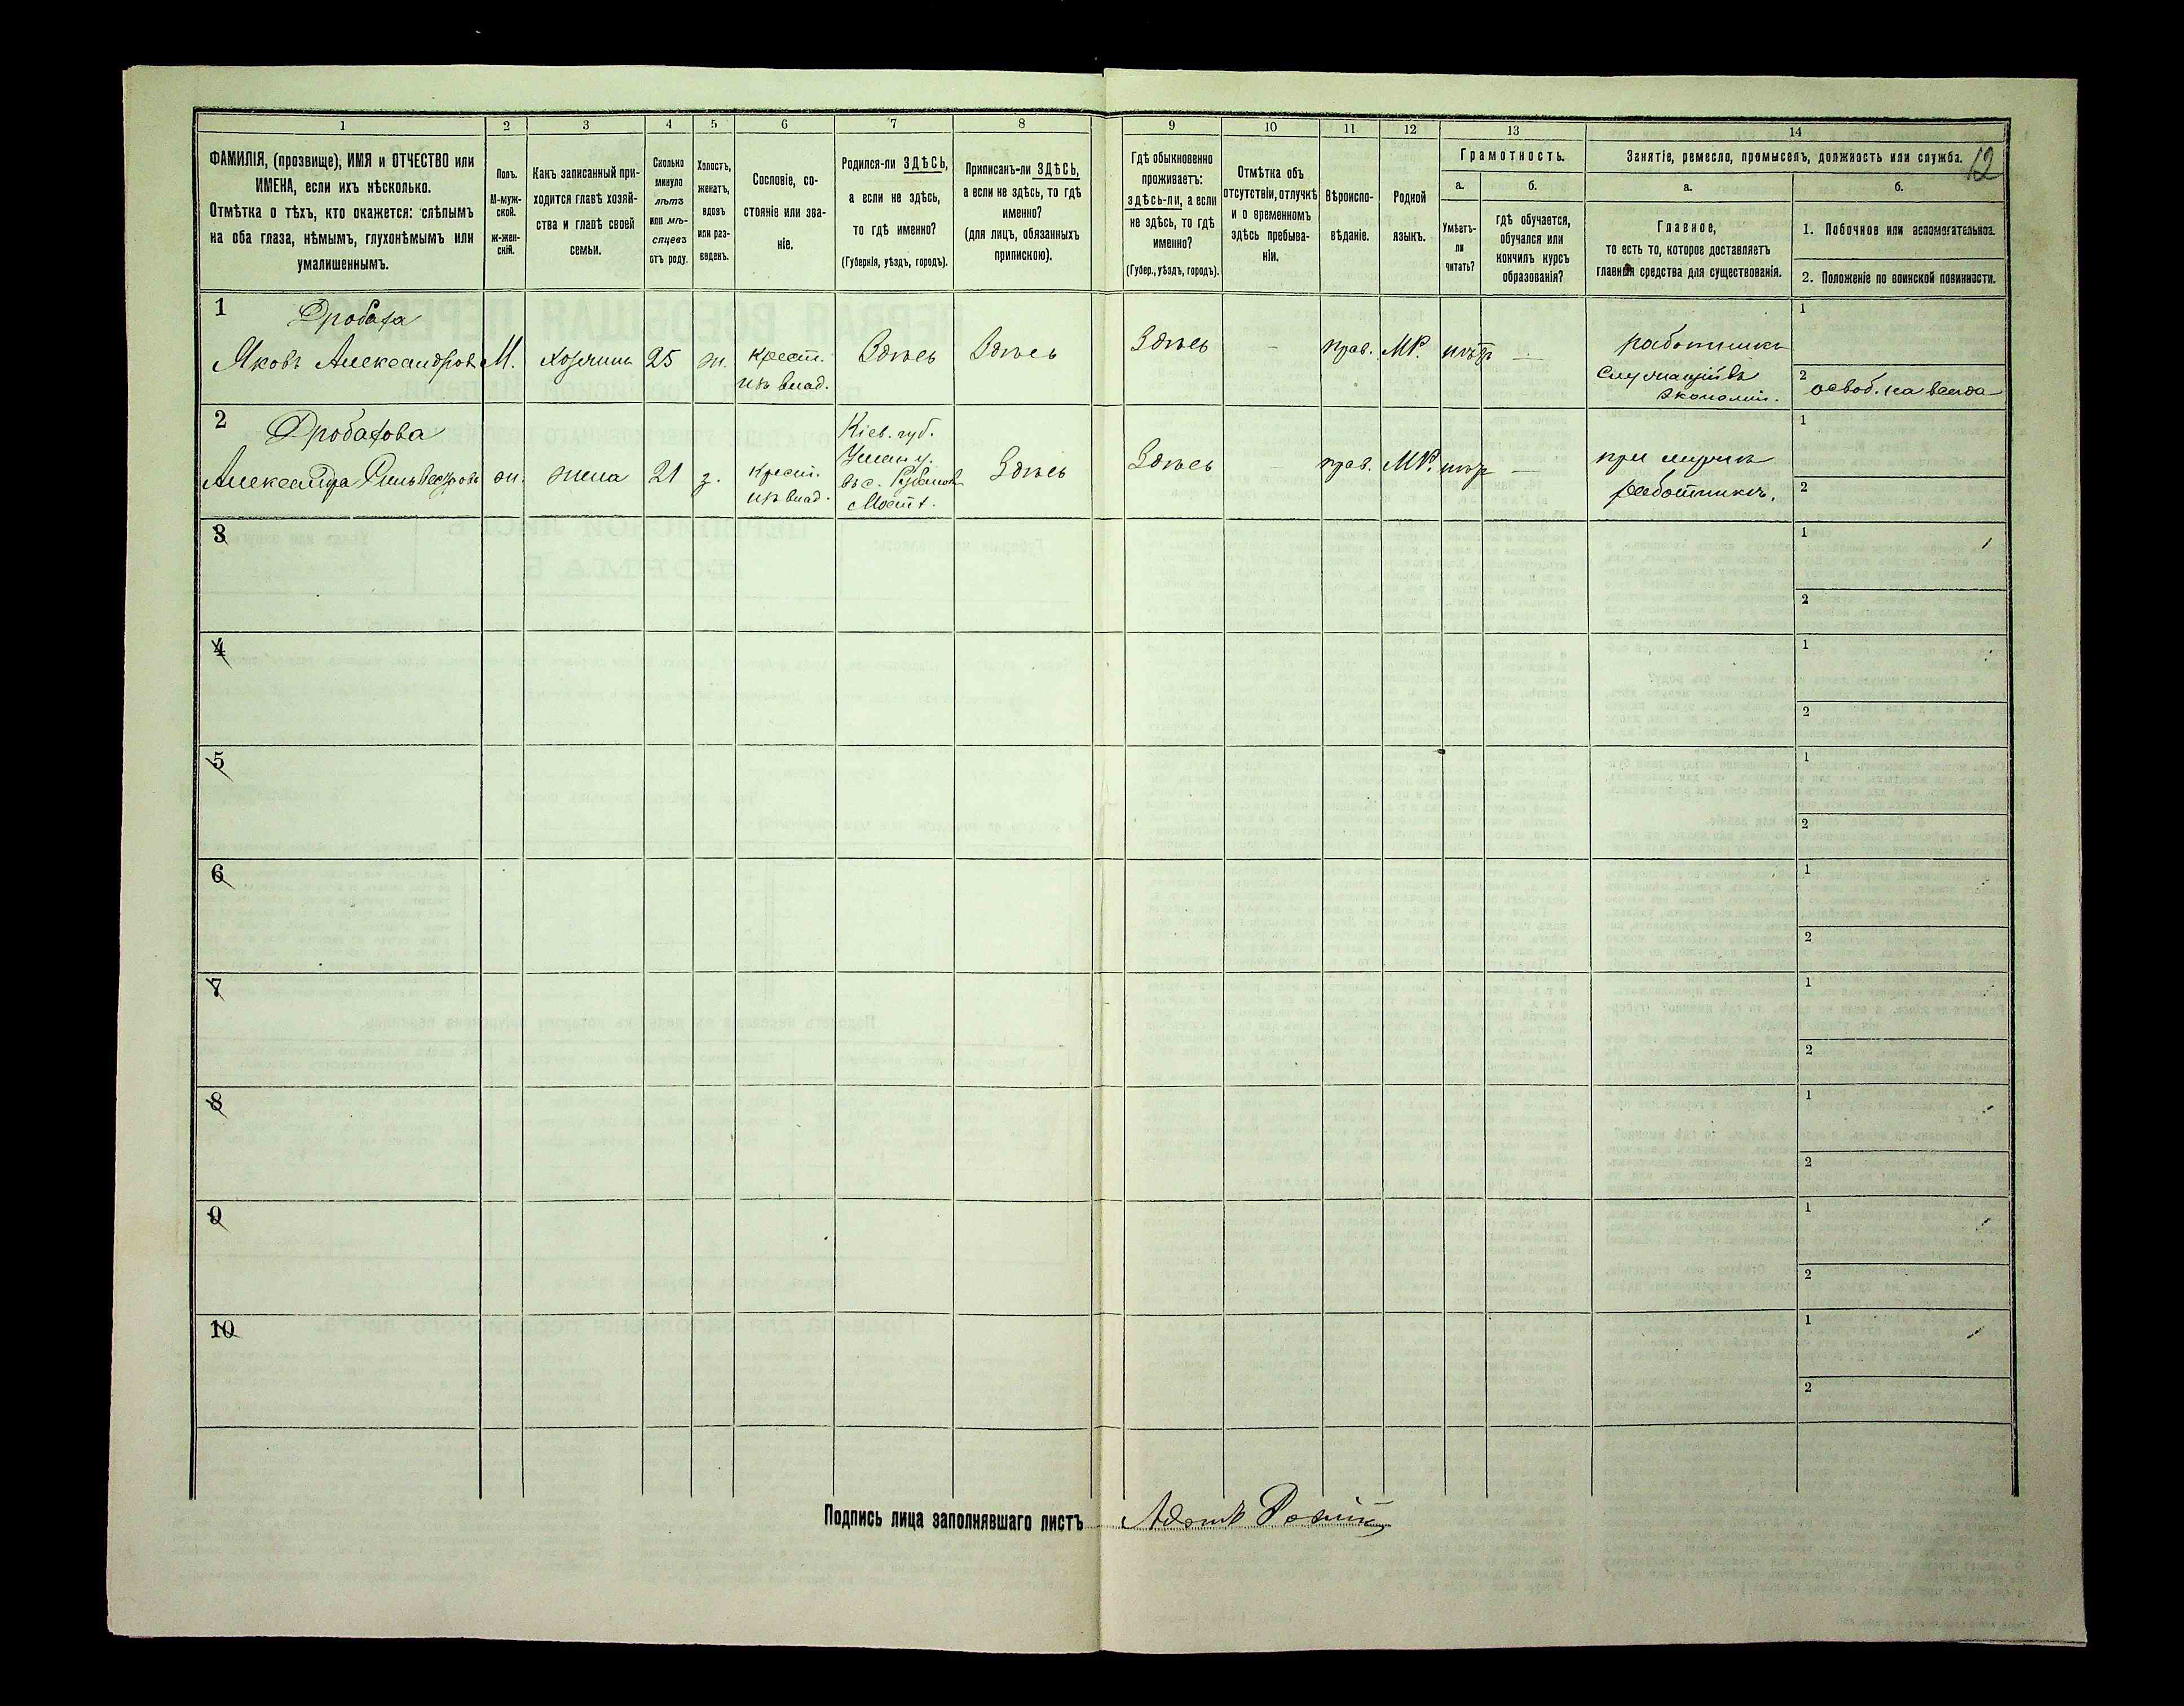 1 2 3 4 5 6 7 8 9 10 11 12 13 14
12
ФАМИЛІЯ, (прозвище), ИМЯ и ОТЧЕСТВО или
ИМЕНА, если ихъ нѣсколько.
Отмѣтка о тѣхъ, кто окажется: слѣпымъ
на оба глаза, нѣмымъ, глухонѣмымъ или
умалишеннымъ.
Полъ.
М-муж-
ской.
ж-жен-
скій.
Какъ записанный при-
ходится главѣ хозяй-
ства и главѣ своей
семьи.
Сколько
минуло
лѣтъ
или мѣ-
сяцевъ
отъ роду.
Холостъ,
женатъ,
вдовъ
или раз-
веденъ.
Сословіе, со-
стояніе или зва-
ніе.
Родился-ли ЗДѢСЬ,
а если не здѣсь,
то гдѣ именно?
(Губернія, уѣздъ, городъ).
Приписанъ-ли ЗДѢСЬ,
а если не здѣсь, то гдѣ
именно?
(для лицъ, обязанныхъ
припискою).
Гдѣ обыкновенно
проживаетъ:
здѣсь-ли, а если
не здѣсь, то гдѣ
именно?
(Губер., уѣздъ, городъ).
Отмѣтка объ
отсутствіи, отлучкѣ
и о временномъ
здѣсь пребыва-
ніи.
Вѣроиспо-
вѣданіе.
Родной
языкъ.
Грамотность.
а.
Умѣетъ-
ли
читать?
б.
гдѣ обучается,
обучался или
кончилъ курсъ
образованія?
Занятіе, ремесло, промыселъ, должность или служба.
а.
Главное,
то есть то, которое доставляетъ
главныя средства для существованія.
б.
1. Побочное или вспомогательное.
2. Положеніе по воинской повинности.
1
Дробаха
Яковъ Александровъ
М.
хозяинъ
25
ж.
крест.
изъ влад.
Здѣсь
Здѣсь
Здѣсь
—
прав.
МР.
нѣтъ
—
работникъ
служащій въ
экономіи.
1
2 освоб. навсегда
2
Дробахова
Александра Сильвестрова
ж.
жена
21
з.
крест.
изъ влад.
Кіев. губ.
Уман. у.
въ с.
Здѣсь
Здѣсь
—
прав.
МР.
нѣтъ
—
при мужѣ
работникѣ.
1
2
3
1
2
4
1
2
5
1
2
6
1
2
7
1
2
8
1
2
9
1
2
10
1
2
Подпись лица заполнявшаго листъ